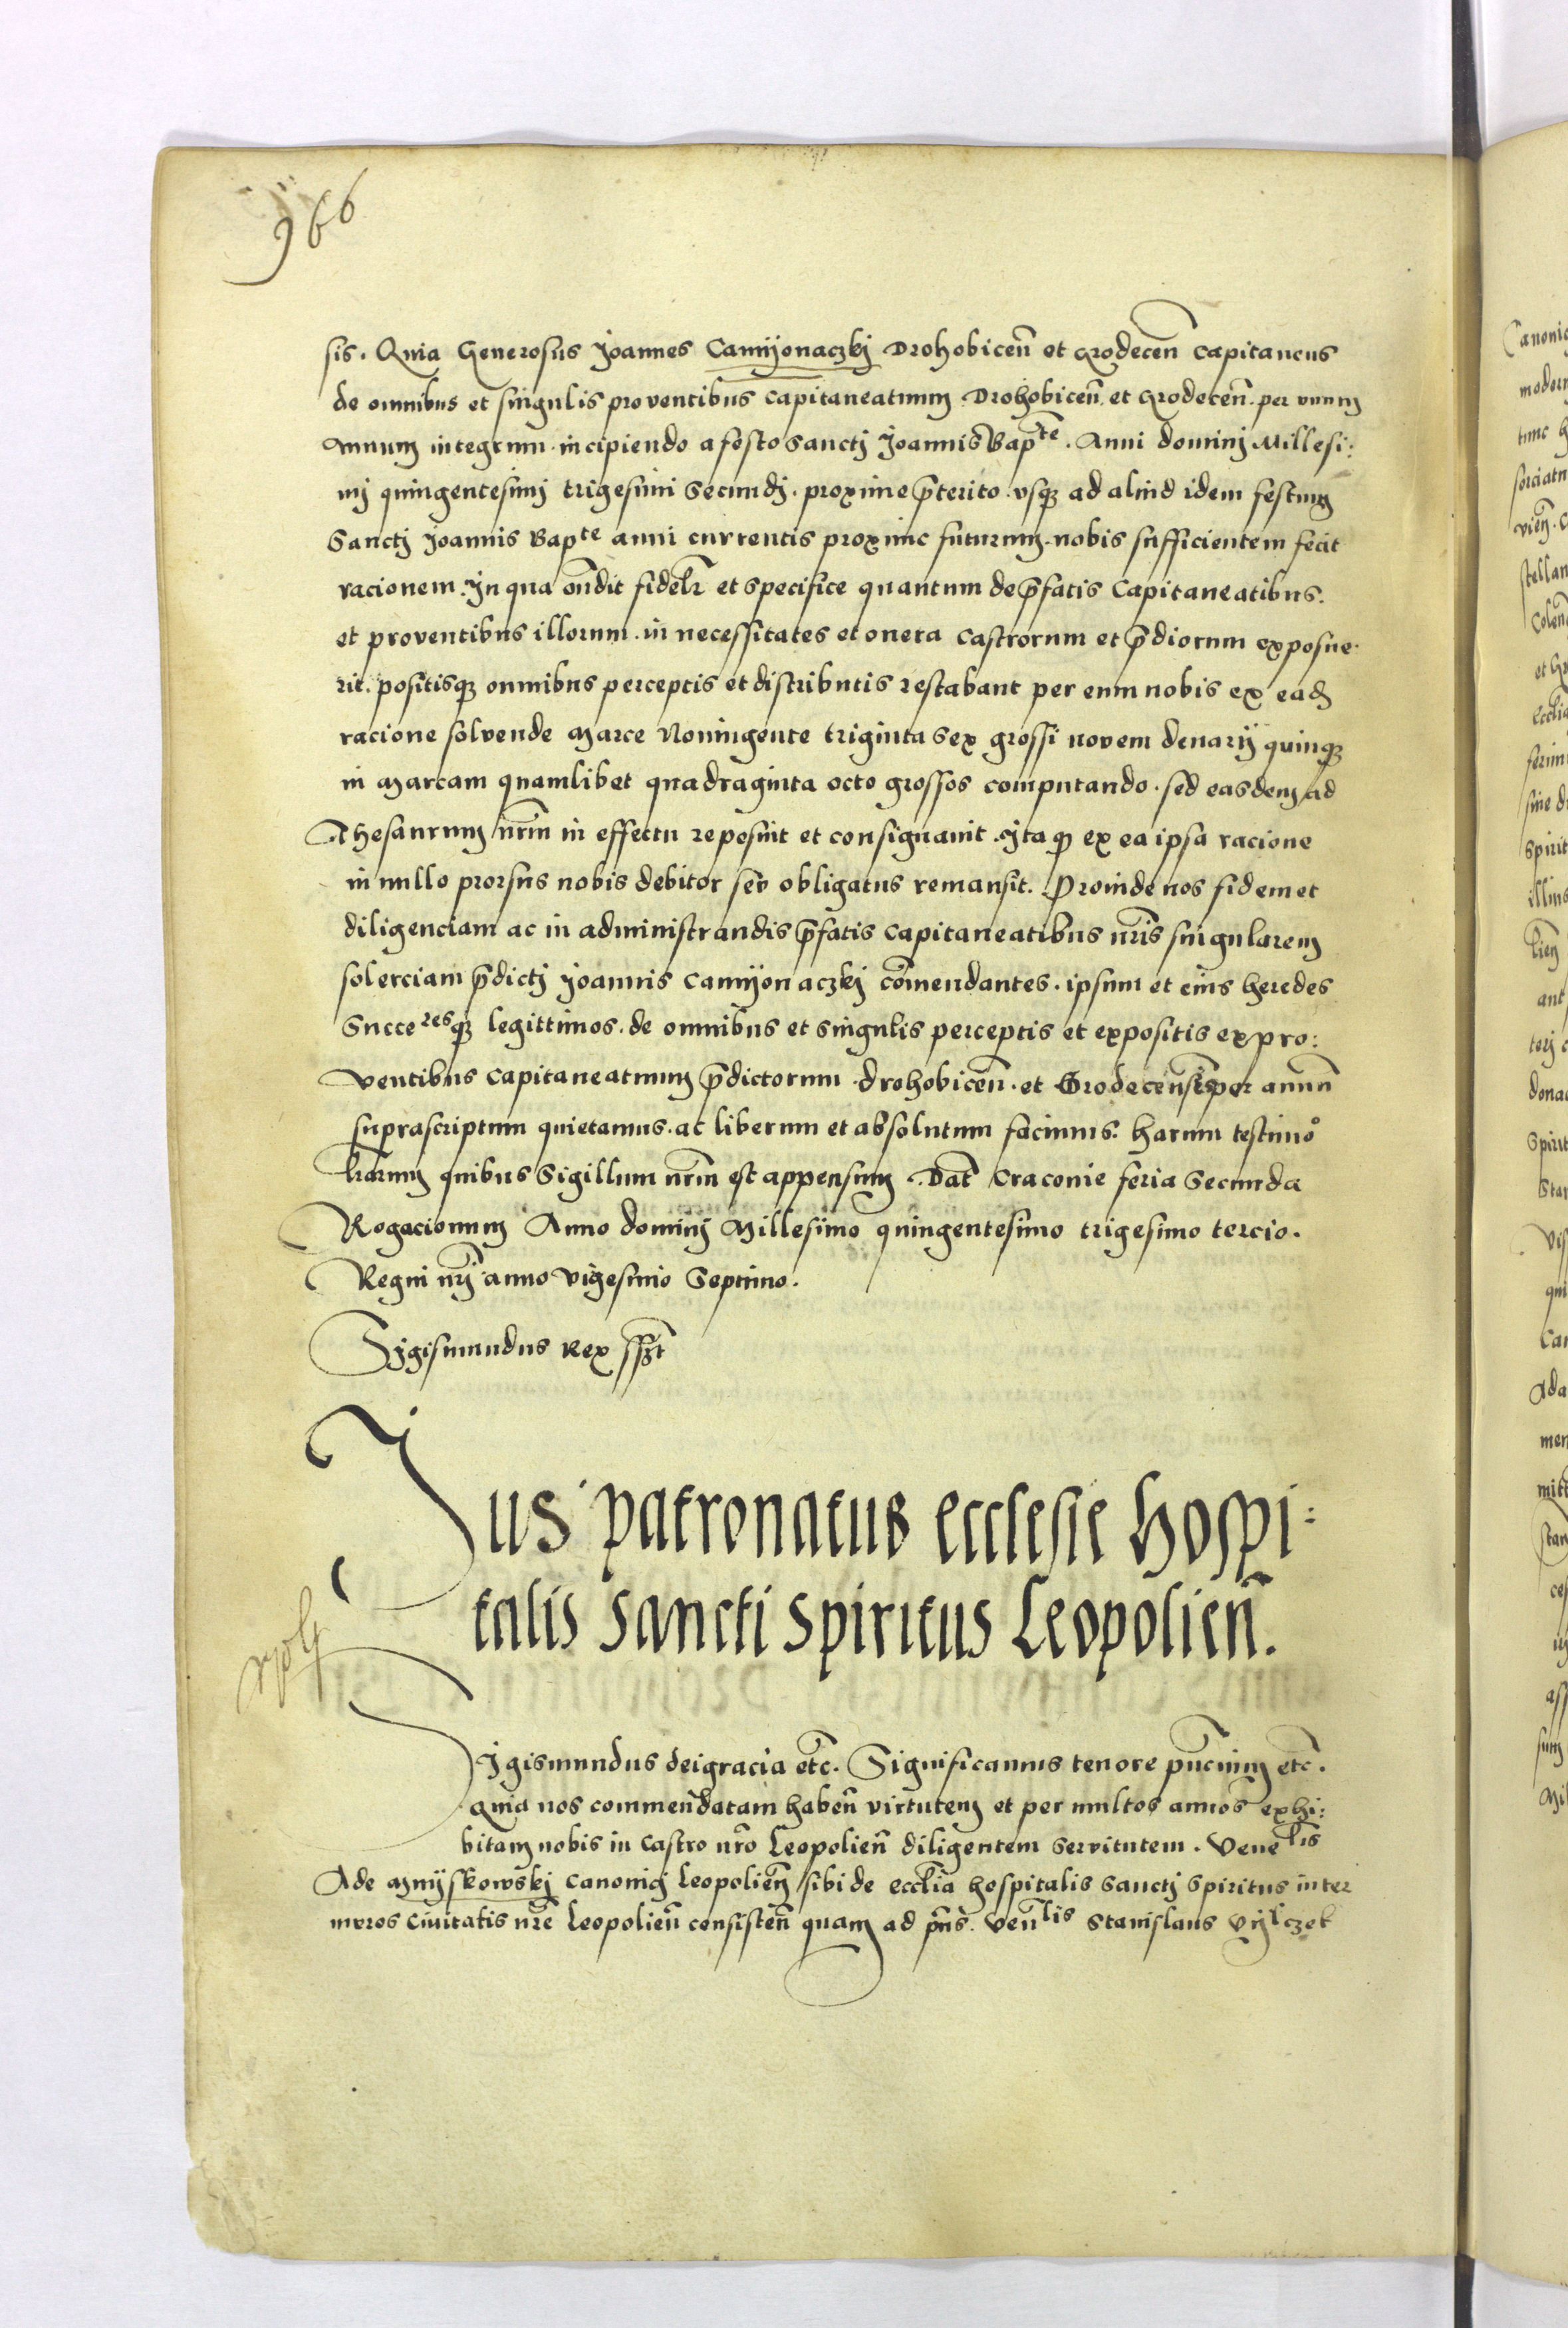 966
sis. Quia Generosus Joannes Camyonaczkj Drohobiceñ et Grodeceñ Capitaneus
de omnibus et singulis proventibus capitaneatuum Drohobiceñ. et Grodeceñ. per vnum
Annum integrum incipiendo a festo Sanctj Joannis Bapte. Anni dominj Millesi:
mj quingentesimj trigesimi Secundj. proxime p̄terito. vsqȝ ad aliud idem festum
Sanctj Joannis Bapte anni currentis proxime futurum. nobis sufficientem fecit
racionem. In qua oñdit fidelr̃ et specifice quantum de p̄fatis Capitaneatibus.
et proventibus illorum. in necessitates et onera castrorum et p̄diorum exposue
rit. positisqȝ omnibus perceptis et distributis restabant per eum nobis ex ead̃
racione solvende Marce Noningente triginta sex grossi novem denarij quinqȝ
in Marcam quamlibet quadraginta octo grossos computando. sed easdem ad
Thesaurum nr̃m in effectu reposuit et consignauit. Ita qȝ ex ea ipsa racione
in nullo prorsus nobis debitor seu obligatus remansit. Proinde nos fidem et
diligenciam ac in administrandis p̄fatis capitaneatibus nr̃is singularem
solerciam p̄dictj Joannis Camyonaczkj com̃endantes. ipsum et eius heredes
Succeresqȝ legittimos. de omnibus et singulis perceptis et expositis ex pro:
ventibus capitaneatuum p̄dictorum. drohobiceñ. et Grodecensis per annum
suprascriptum quietamus. ac liberum et absolutum facimus. harum testimo
lr̃arum quibus Sigillum nr̃m est appensum. Dat̃ Craconie feria Secunda
Rogacionum Anno dominj Millesimo quingentesimo trigesimo tercio.
Regni nr̃j anno vigesimo Septimo.
Sigismundus Rex sszt
Jus patronatus ecclesie Hospi:
talis Sancti Spiritus Leopolieñ.
Sigismundus dei gracia etc̃. Significamus tenore pñcium etc̃.
Quia nos commendatam habeñ virtutem et per multos annos exhi:
bitam nobis in Castro nr̃o Leopolieñ diligentem servitutem. Venelis
Ade Myskowskj Canonicj Leopolieñ sibi de eccl̃ia hospitalis Sanctj Spiritus inter
muros Civitatis nr̃e Leopolieñ consisteñ quam ad pñs. Veñlis Stanislaus Vylczek